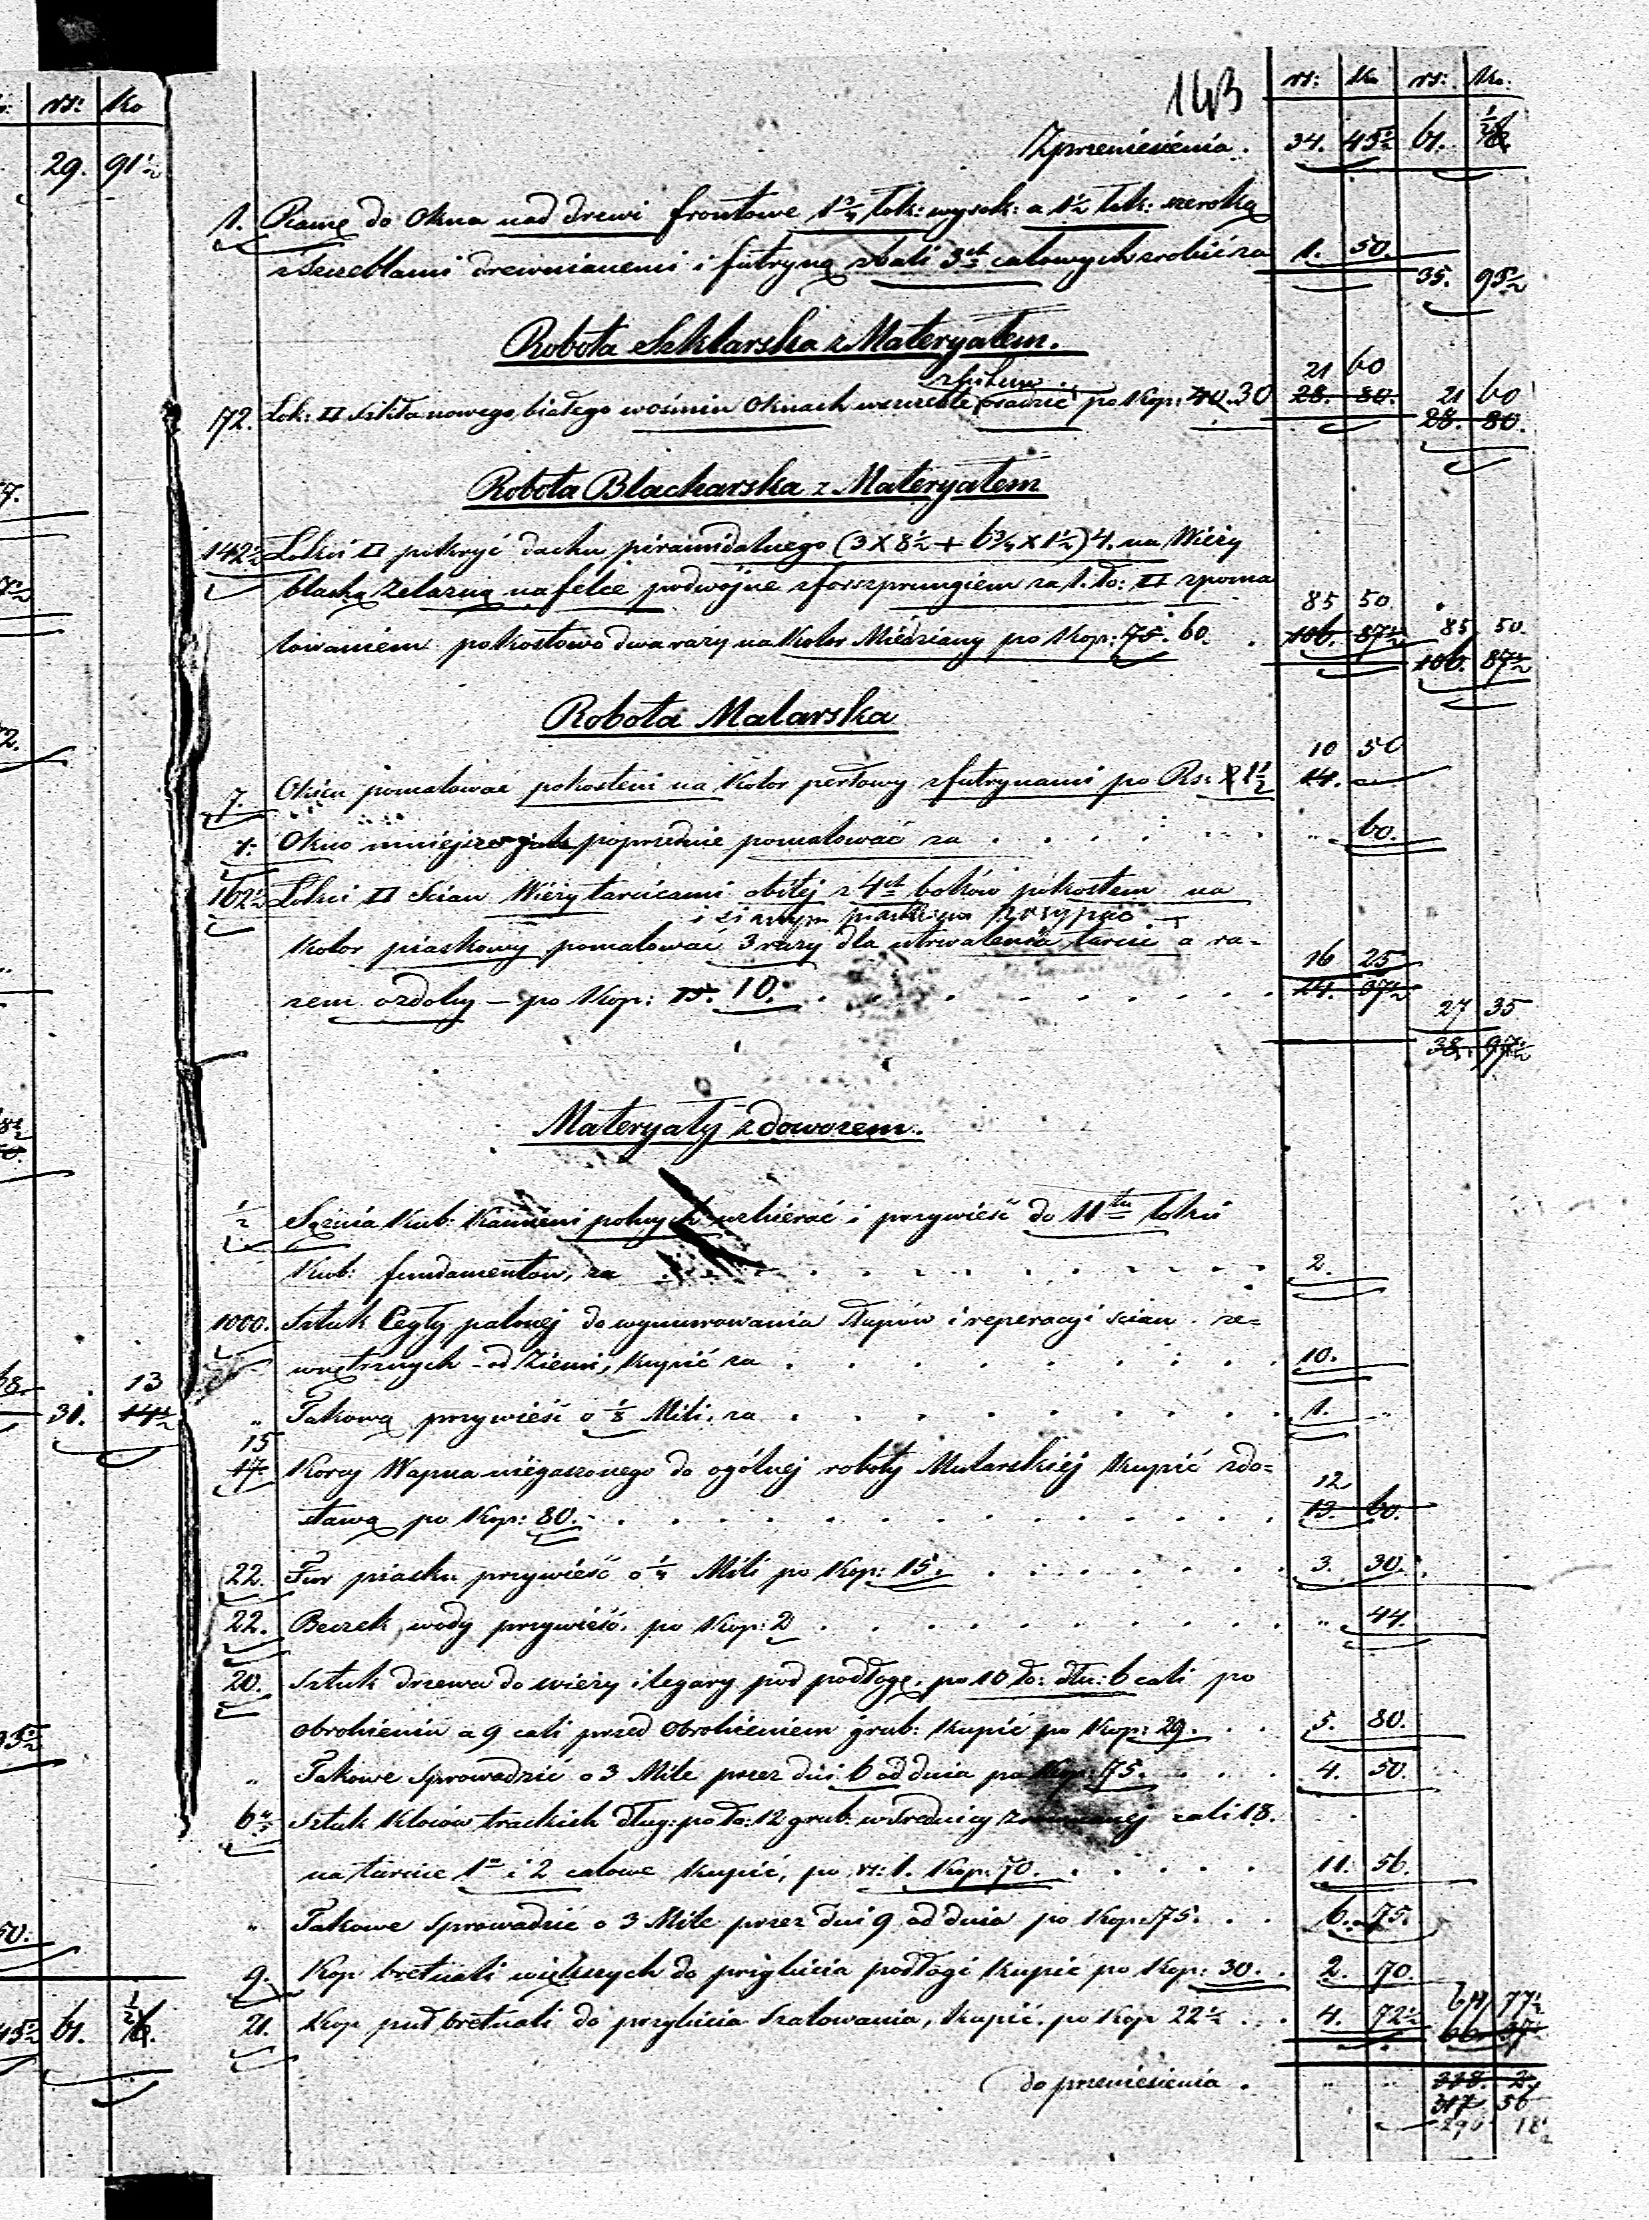 143
rs: ko rs: ko:
Zprzeniesienia. 34. 45½ 61.
1. Ramę do Okna nad drzwi frontowe 1¾ łok: wysok: a 1½ łok: szeroką
z szczeblami drewnianemi i futryną z bali 3ch calowych zrobić za 1. 50.
35. 95½
Robota Szklarska z Materyałem.
21 60
z kitem
72. Łok: □ Szkła nowego, białego w ośmiu Oknach w szczeble osadzić po Kop: 40. 30 28. 80. 21 60
28. 80.
Robota Blacharska z Materyałem
142½ Łokci □ pokryć dachu piramidalnego (3 X 8½ + 6¾ X 1½) 4. na Wieży
blachą żelazną na felce podwójne z forszprungiem za 1. ło: □ z poma
85 50.
lowaniem pokostowo dwa razy na Kolor Miedziany po Kop: 75. 60. 106. 87½ 85 50.
106. 87½
Robota Malarska
10 50
7. Okien pomalować pokostem na Kolor perłowy z futrynami po Rs: 2 1½ 14. „
1. Okno mniejsze jak poprzednie pomalować za . . . . „ 60.
162½ Łokci □ Scian Wieży tarcicami obitej z 4ch boków pokostem na
i zianym piaskiem posypać
Kolor piaskowy pomalować 3 razy dla utrwalenia tarcic a ra-
16 25
zem ozdoby – po Kop: 15. 10. . . . . 24. 37½
27 35
38. 97½
Materyały z dowozem.
½ Sążnia Kub: Kamieni polnych uzbierać i przywieść do 11tu łokci
Kub: fundamentów, za . . . . 2.
1000. Sztuk Cegły palonej do wymurowania słupów i reperacyi scian ze-
wnętrznych – od Ziemi, Kupić za . . . . 10.
„ Takową przywieść o ⅛ Mili, za . . . . 1. „
15
17. Korcy Wapna niegaszonego do ogólnej roboty Mularskiéj Kupić z do-
12
stawą po Kop: 80. . . . . 13. 60.
22. Fur piasku przywieść o ¼ Mili po Kop: 15. . . . . 3. 30.
22. Beczek wody przywieść, po Kop: 2 . . . . „ 44.
20. Sztuk drzewa do wieży i legary pod podłogę, po 10 ło: dłu: 6 cali po
obrobieniu a 9 cali przed Obrobieniem grub: Kupić po Kop: 29. . . 5. 80.
„ Takowe Sprowadzić o 3 Mile przez dni 6 od dnia po Kop: 75. . . . 4. 50.
Sztuk Kloców trackich dług: po ło: 12 grub: w Srednicy cali 18.
na tarcice 1no i 2 calowe Kupić, po rs: 1. Kop: 70. . . . . 11. 56.
„ Takowe Sprowadzić o 3 Mile przez dni 9 od dnia po Kop: 75. . . 6. 75.
9. Kop bretnali większych do przybicia podłogi Kupić po Kop: 30. . 2. 70.
64 77½
21. Kop puł bretnali do przybicia Szalowania, Kupić po Kop 22½ . . . 4. 72½ 66. 37½
do przeniesienia . „ „
317 56
290 18½
rs: ko
29. 91½
13
31. 14½
61.